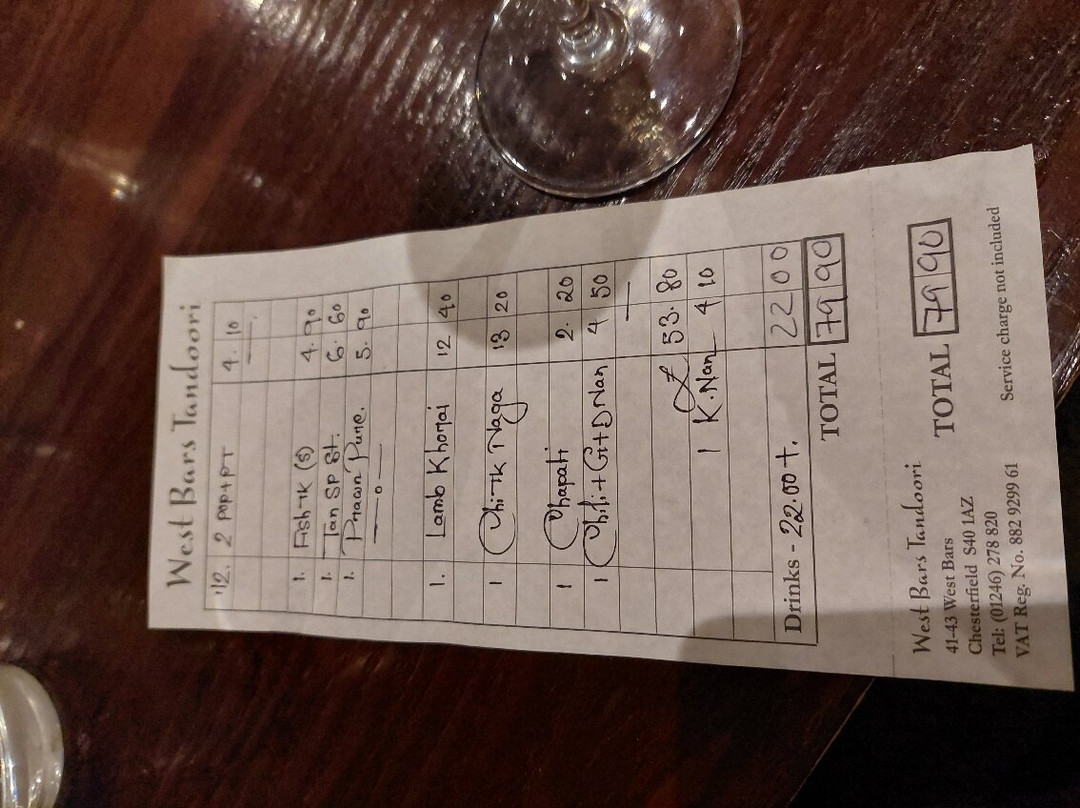 West Bars Tandoori
1/2. 2 POP+PT 4. 10
1. Fish-TK (S) 4. 90
1. Tan SP 6. 60
1. Prawn Pure. 5. 90
— o —
1. Lamb Khorai 12 40
1 Chi-TK Naga 13 20
1 Chapati 2. 20
1 Chili+G+D Nan 4 50
£ 53. 80
1 K. Nan 4 10
Drinks - 22.00+. 22 00
TOTAL 79 90
West Bars Tandoori
41-43 West Bars
Chesterfield S40 1AZ
Tel: (01246) 278 820
VAT Reg. No. 882 9299 61
TOTAL 79 90
Service charge not included